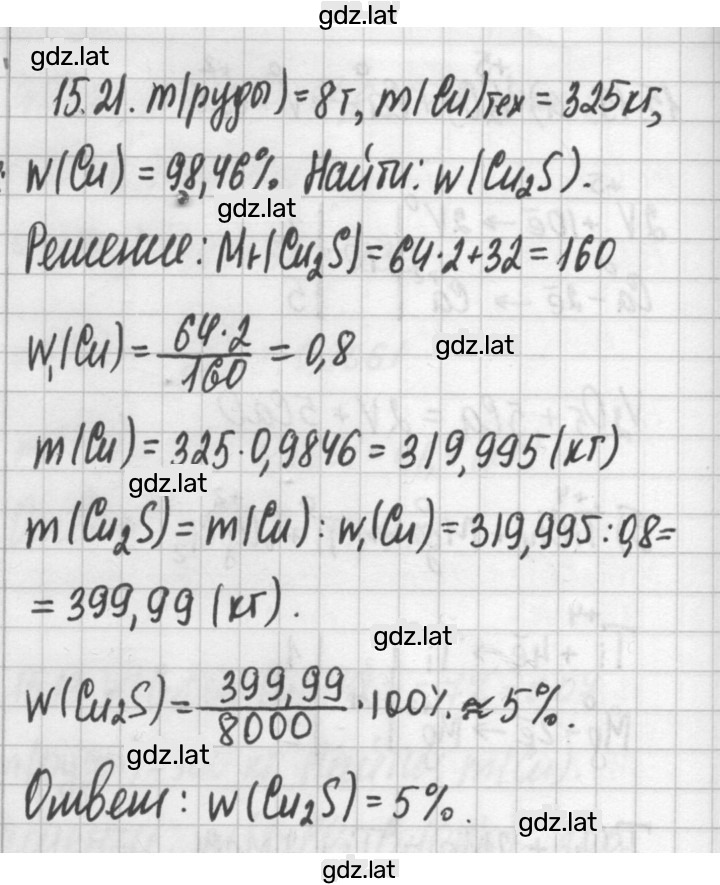 gdz.lat
gdz.lat
15.21. m(руды) = 8т, m(Cu)тех = 325кг,
w(Cu) = 98,46%. Найти: w(Cu₂S).
gdz.lat
Решение: Mr(Cu₂S) = 64·2+32 = 160
w₁(Cu) = 64·2/160 = 0,8
gdz.lat
m(Cu) = 325·0,9846 = 319,995(кг)
gdz.lat
m(Cu₂S) = m(Cu) : w₁(Cu) = 319,995 : 0,8 =
= 399,99 (кг).
gdz.lat
w(Cu₂S) = 399,99/8000 ·100% ≈ 5%.
gdz.lat
Ответ: w(Cu₂S) = 5%.
gdz.lat
gdz.lat